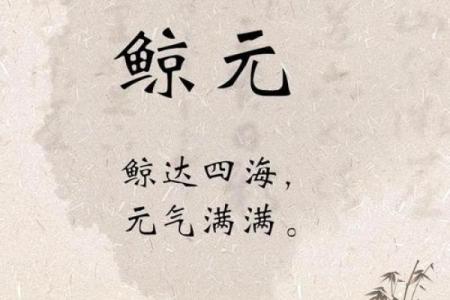 鲸元
鲸达四海，
元气满满。